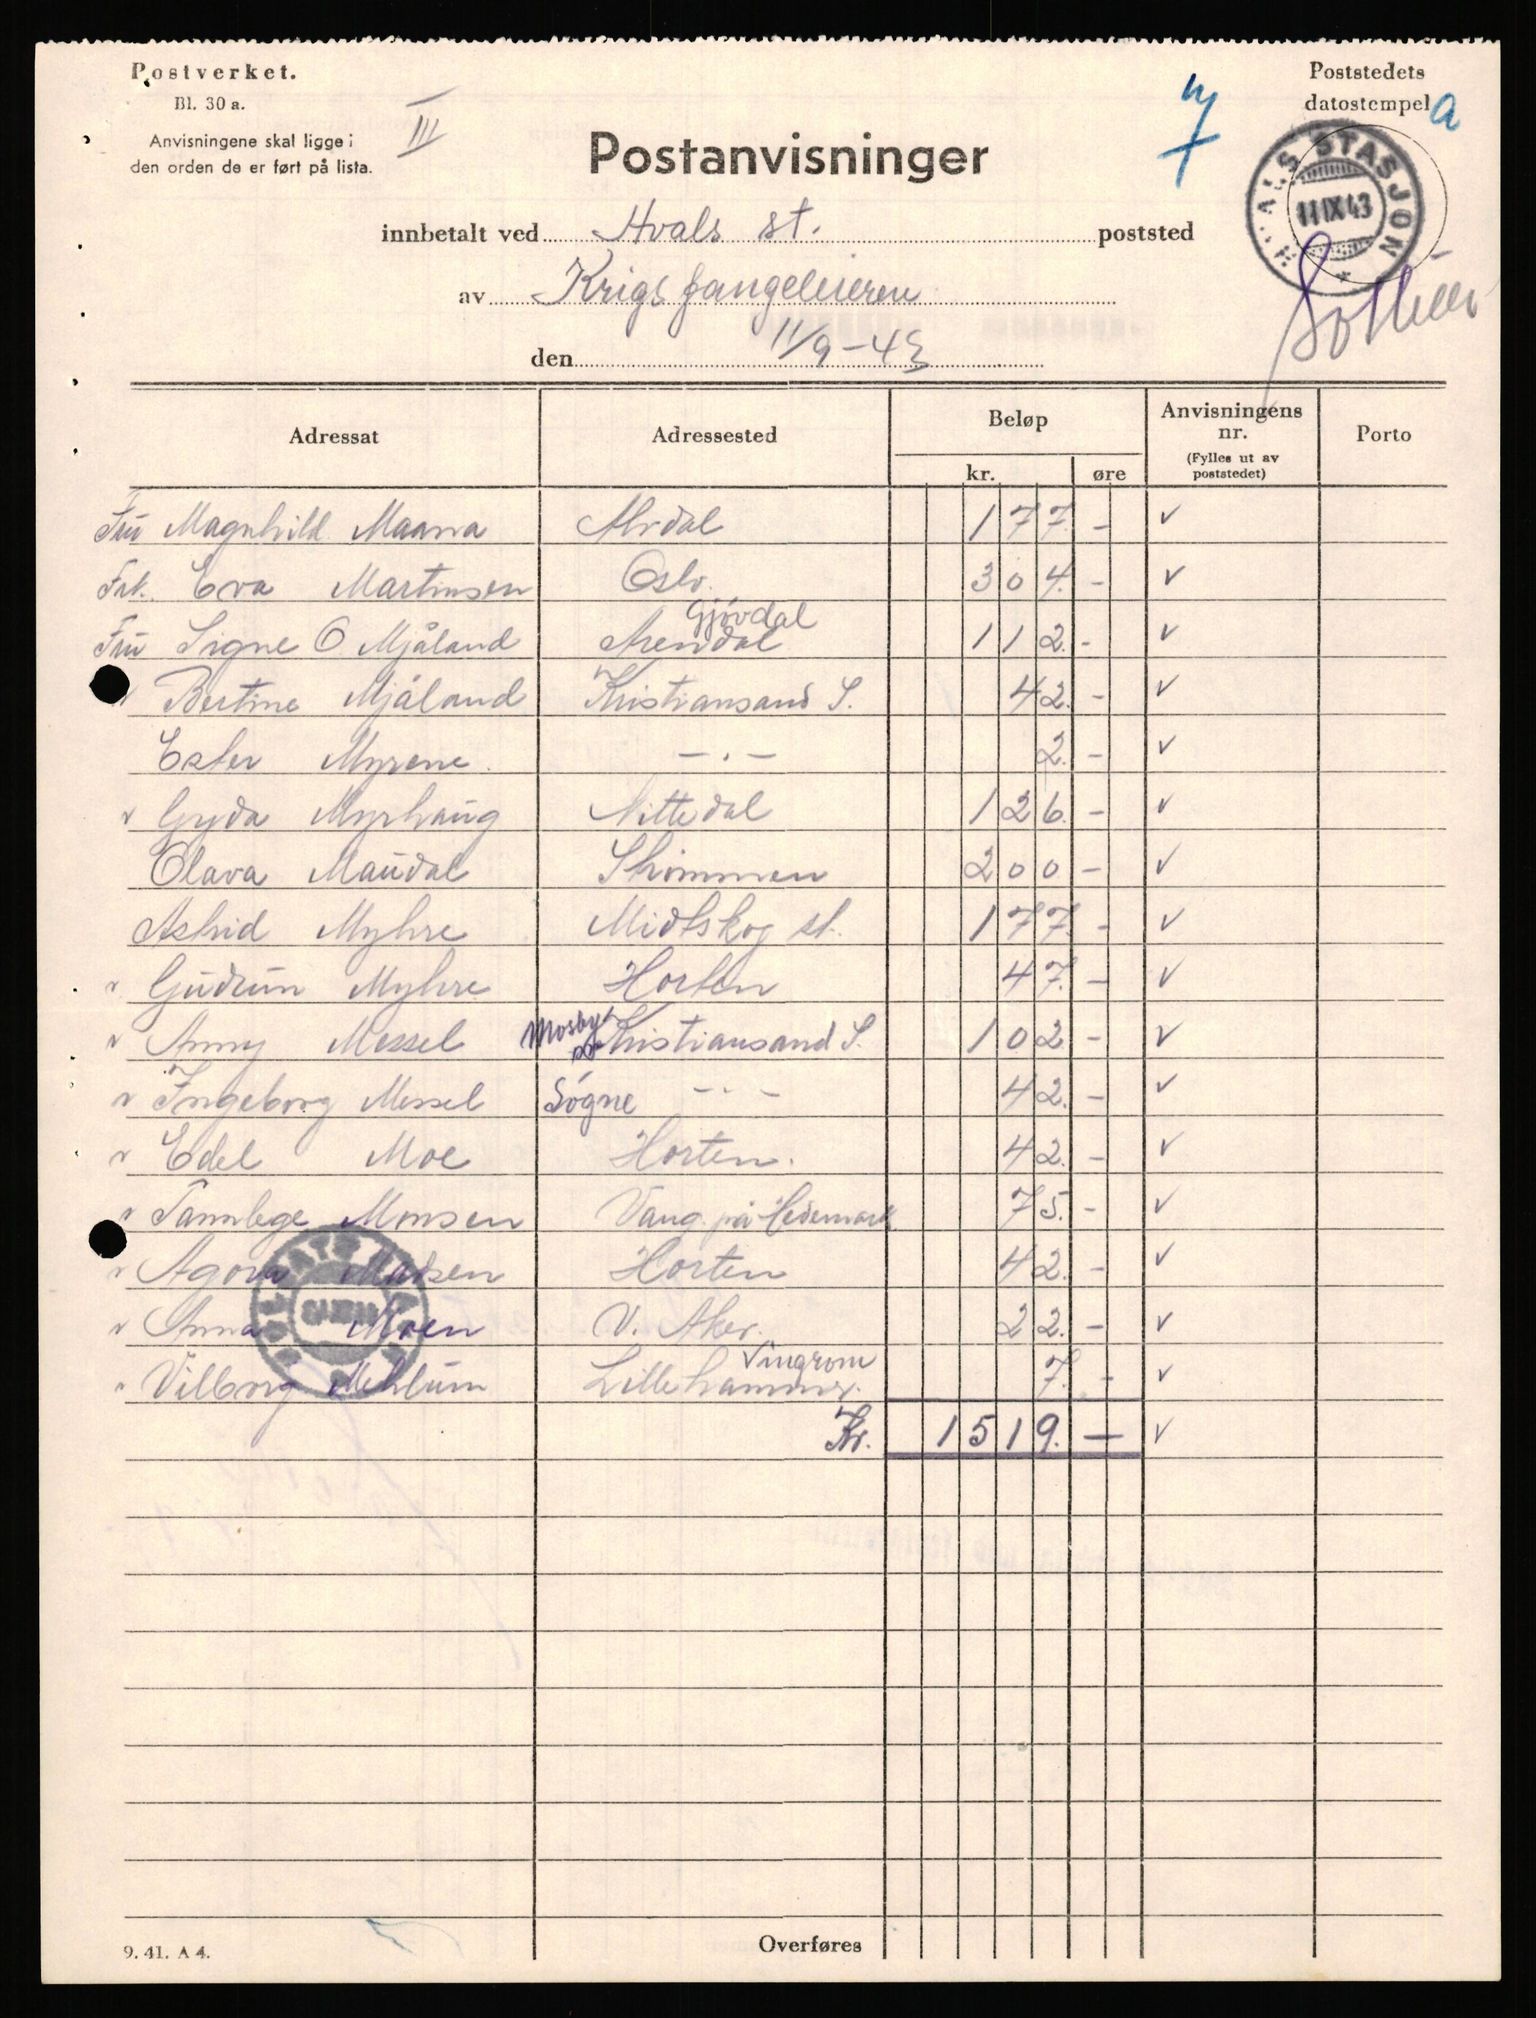 Postverket.
Bl. 30 a.
Anvisningene skal ligge i
den orden de er ført på lista.
III
Postanvisninger
7
Poststedets
datostempel a
HVALS STASJON
11 IX 43
innbetalt ved Hvals st. poststed
av Krigsfangeleieren
den 11/9-43
Adressat Adressested Beløp Anvisningens nr. Porto
kr. øre (Fylles ut av poststedet)
Fru Magnhild Maana Alvdal 177 - v
Frk. Eva Martinsen Oslo. 304. - v
Gjövdal
Fru Signe O Mjåland Arendal 112. - v
Bertine Mjåland Kristiansand S. 42. - v
Ester Myrene. - . - 2. - v
v Gyda Myrhaug Nittedal 126. - v
Olava Maudal Skrommen 200 - v
Astrid Myhre Midtskog st. 177. - v
v Gudrun Myhre Horten 47. - v
v Anny Messel Mosby Kristiansand S. 102 - v
v Ingeborg Messel Søgne - . - 42. - v
v Edel Moe Horten. 42. - v
v Tannlege Monsen Vang på Hedemark 75. - v
v Agora Madsen Horten 42. - v
v Anna Moen V. Aker. 22. - v
Vingrom
v Vilborg Mehlum Lillehammer. 7. - v
Kr. 1519. - v
9. 41. A 4.
Overføres